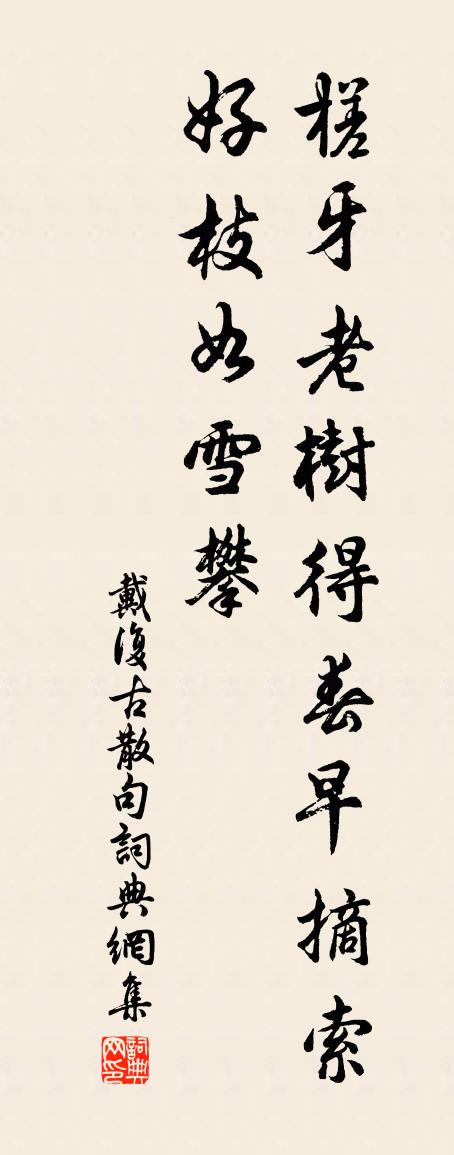 槎牙老樹得春早摘索
好枝如雪攀
戴復古散句詞典網集
詞典网印